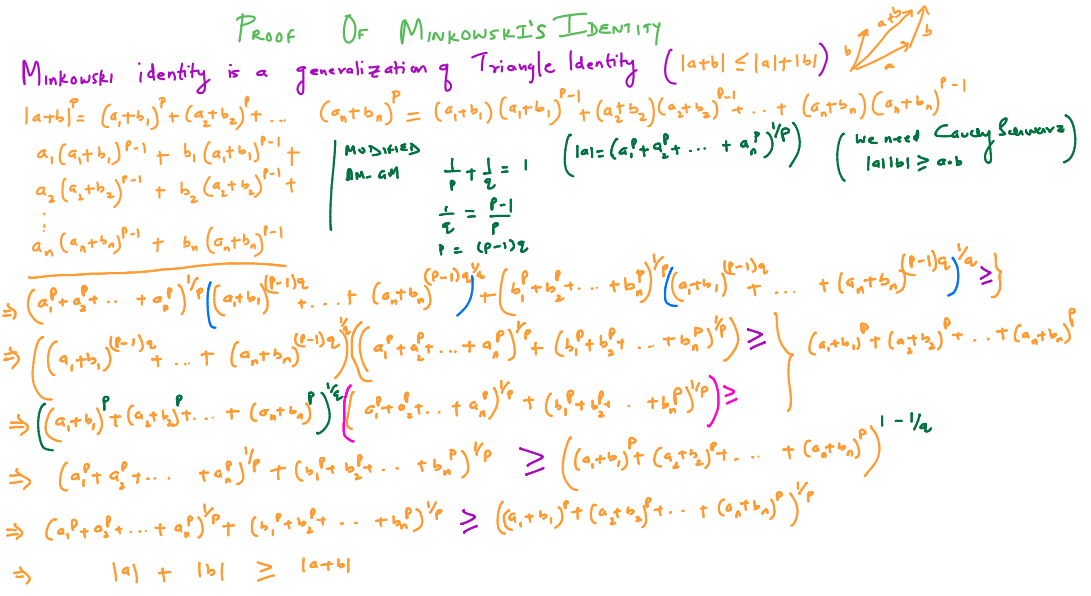 PROOF OF MINKOWSKI'S IDENTITY
MINKOWSKI identity is a generalization of Triangle Identity (|a+b| ≤ |a|+|b|)
a+b
b
b
a
|a+b|^p = (a₁+b₁)^p + (a₂+b₂)^p + ... (aₙ+bₙ)^p = (a₁+b₁)(a₁+b₁)^{p-1} + (a₂+b₂)(a₂+b₂)^{p-1} + .. + (aₙ+bₙ)(aₙ+bₙ)^{p-1}
a₁(a₁+b₁)^{p-1} + b₁(a₁+b₁)^{p-1} +
a₂(a₂+b₂)^{p-1} + b₂(a₂+b₂)^{p-1} +
⋮
aₙ(aₙ+bₙ)^{p-1} + bₙ(aₙ+bₙ)^{p-1}
MODIFIED
AM-GM
1/p + 1/q = 1
1/q = (p-1)/p
p = (p-1)q
(|a| = (a₁^p + a₂^p + ... + aₙ^p)^{1/p})
(We need Cauchy Schwarz
|a||b| ≥ a·b)
⇒ (a₁^p + a₂^p + .. + aₙ^p)^{1/p} ((a₁+b₁)^{(p-1)q} + ... + (aₙ+bₙ)^{(p-1)q})^{1/q} + (b₁^p + b₂^p + .. + bₙ^p)^{1/p} ((a₁+b₁)^{(p-1)q} + ... + (aₙ+bₙ)^{(p-1)q})^{1/q} ≥ }
⇒ ((a₁+b₁)^{(p-1)q} + ... + (aₙ+bₙ)^{(p-1)q})^{1/q} ((a₁^p + a₂^p + ... + aₙ^p)^{1/p} + (b₁^p + b₂^p + ... + bₙ^p)^{1/p}) ≥ } (a₁+b₁)^p + (a₂+b₂)^p + .. + (aₙ+bₙ)^p
⇒ ((a₁+b₁)^p + (a₂+b₂)^p + ... + (aₙ+bₙ)^p)^{1/q} ((a₁^p + a₂^p + .. + aₙ^p)^{1/p} + (b₁^p + b₂^p + .. + bₙ^p)^{1/p}) ≥
⇒ (a₁^p + a₂^p + ... + aₙ^p)^{1/p} + (b₁^p + b₂^p + .. + bₙ^p)^{1/p} ≥ ((a₁+b₁)^p + (a₂+b₂)^p + ... + (aₙ+bₙ)^p)^{1-1/q}
⇒ (a₁^p + a₂^p + ... + aₙ^p)^{1/p} + (b₁^p + b₂^p + .. + bₙ^p)^{1/p} ≥ ((a₁+b₁)^p + (a₂+b₂)^p + .. + (aₙ+bₙ)^p)^{1/p}
⇒ |a| + |b| ≥ |a+b|